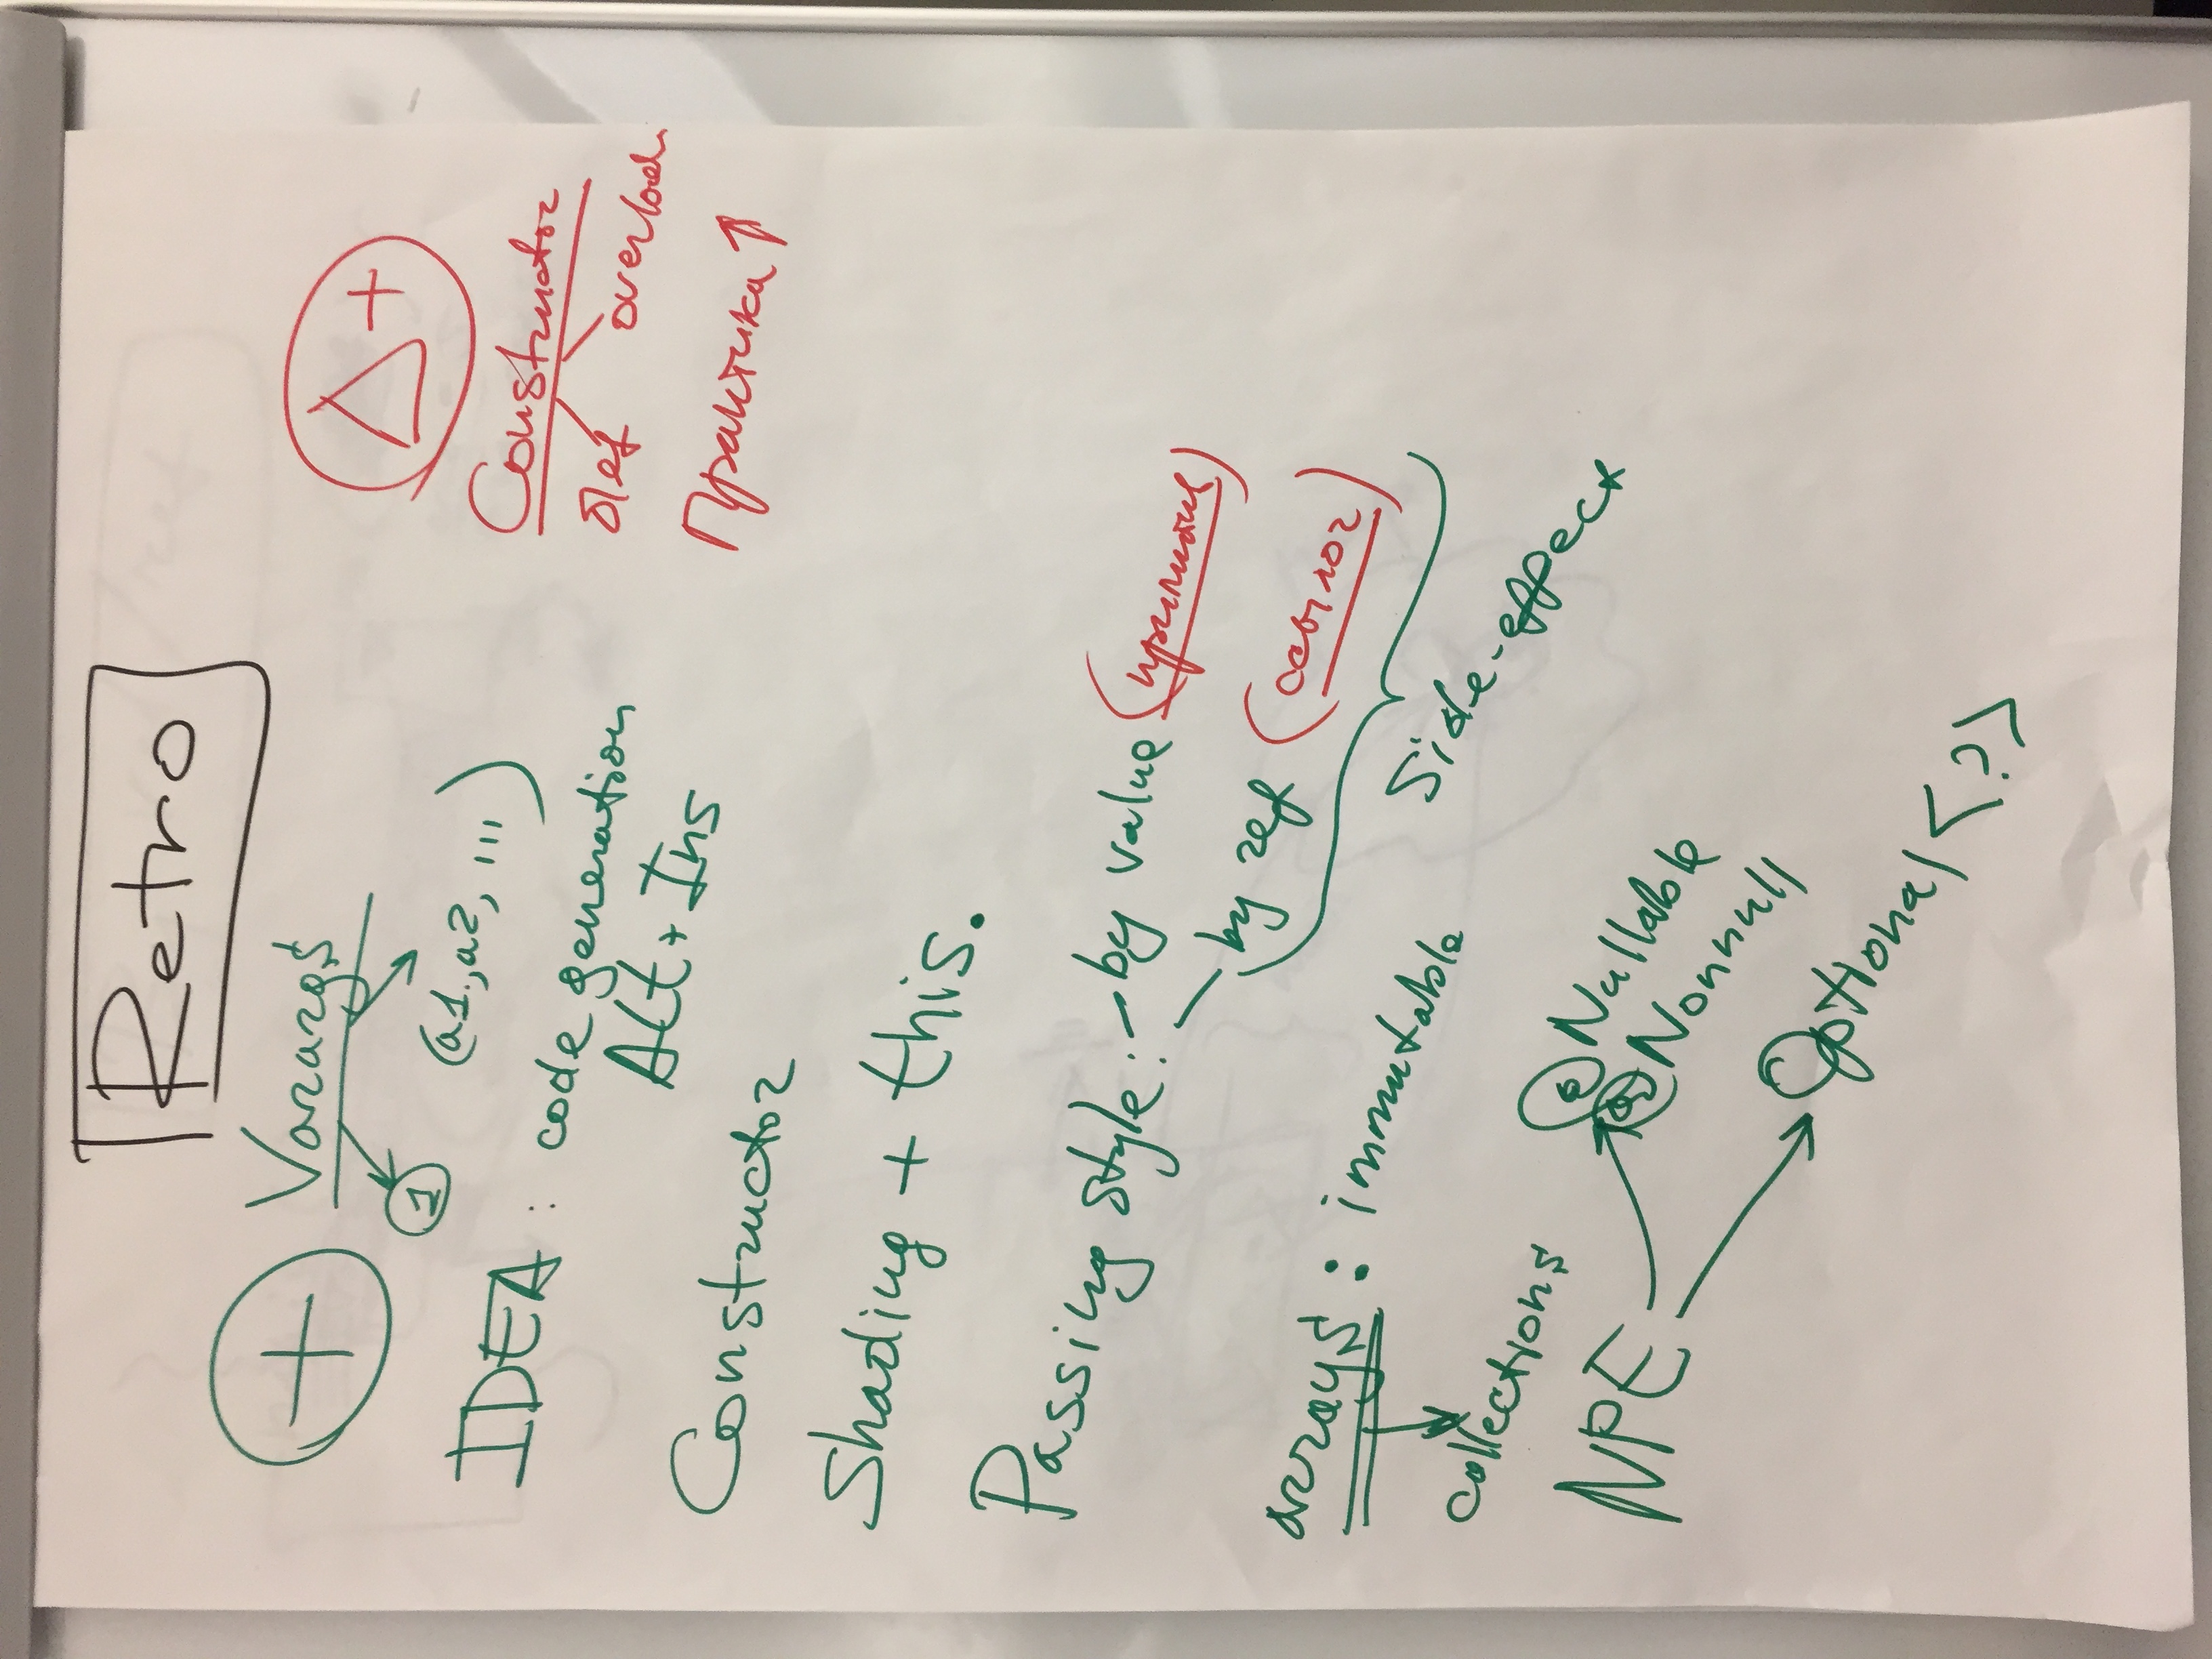 Retro
+ Varargs
1 (a1, a2, ...)
IDEA : code generation
Alt + Ins
Constructor
Shading + this.
Passing style: by value (примитив)
by ref (ссылог)
Side-effect
arrays : immutable
collections
NPE
@Nullable
@Nonnull
Optional<?>
Δ+
Constructor
overload
Практика ↑